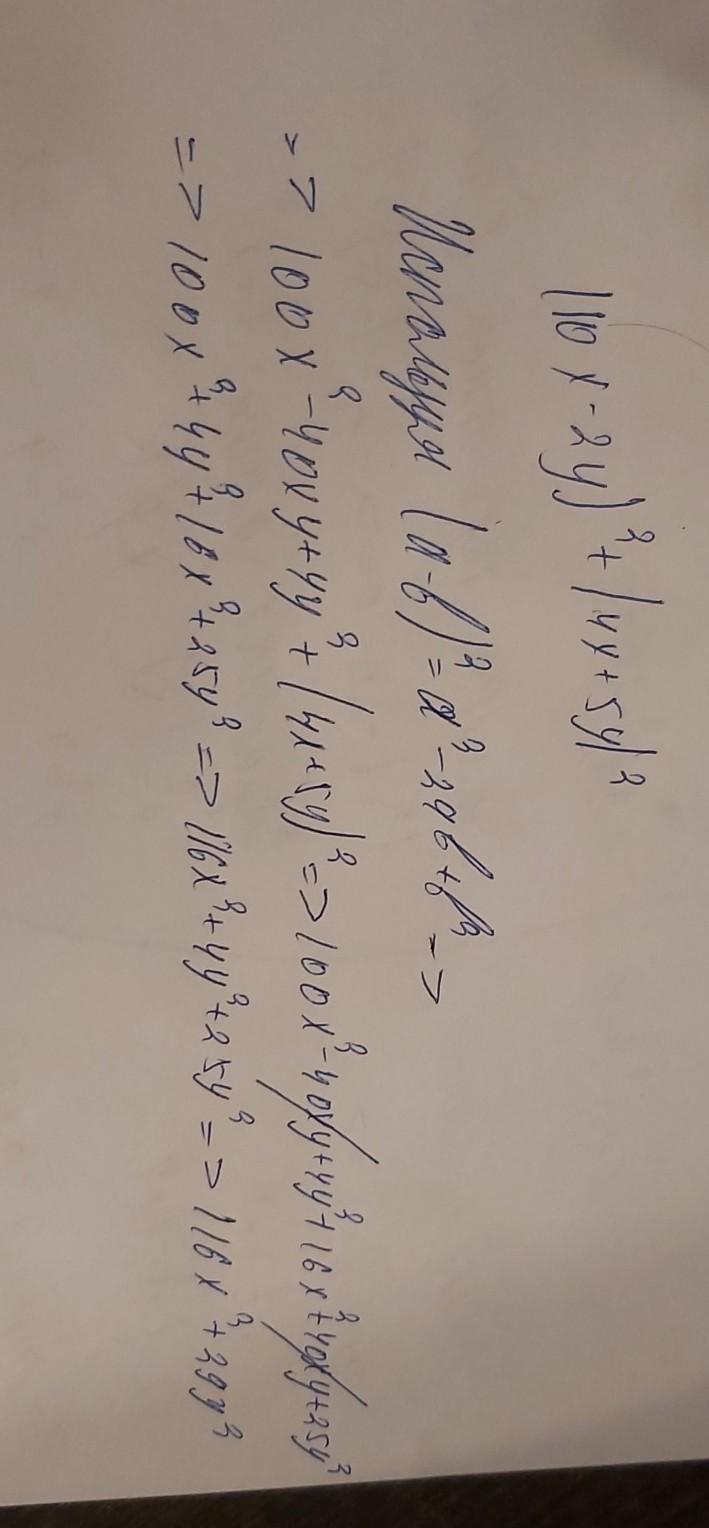 (10x-2y)²+(4x+5y)²
Используя (a-b)²=a²-2ab+b² =>
=> 100x²-40xy+4y²+(4x+5y)² => 100x²-40xy+4y²+16x²+40xy+25y²
=> 100x²+4y²+16x²+25y² => 116x²+4y²+25y² => 116x²+29y²